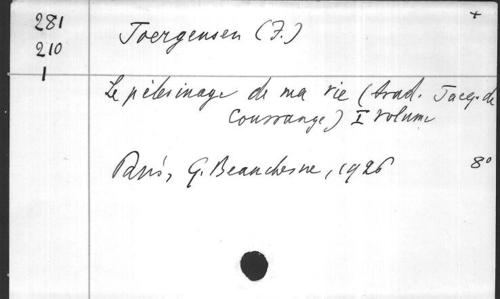 281
210
1
+
Joergensen (J.)
Le pèlerinage de ma vie (trad. Jacq. de
Coussange) I volume
Paris, G. Beauchesne, 1926
8°